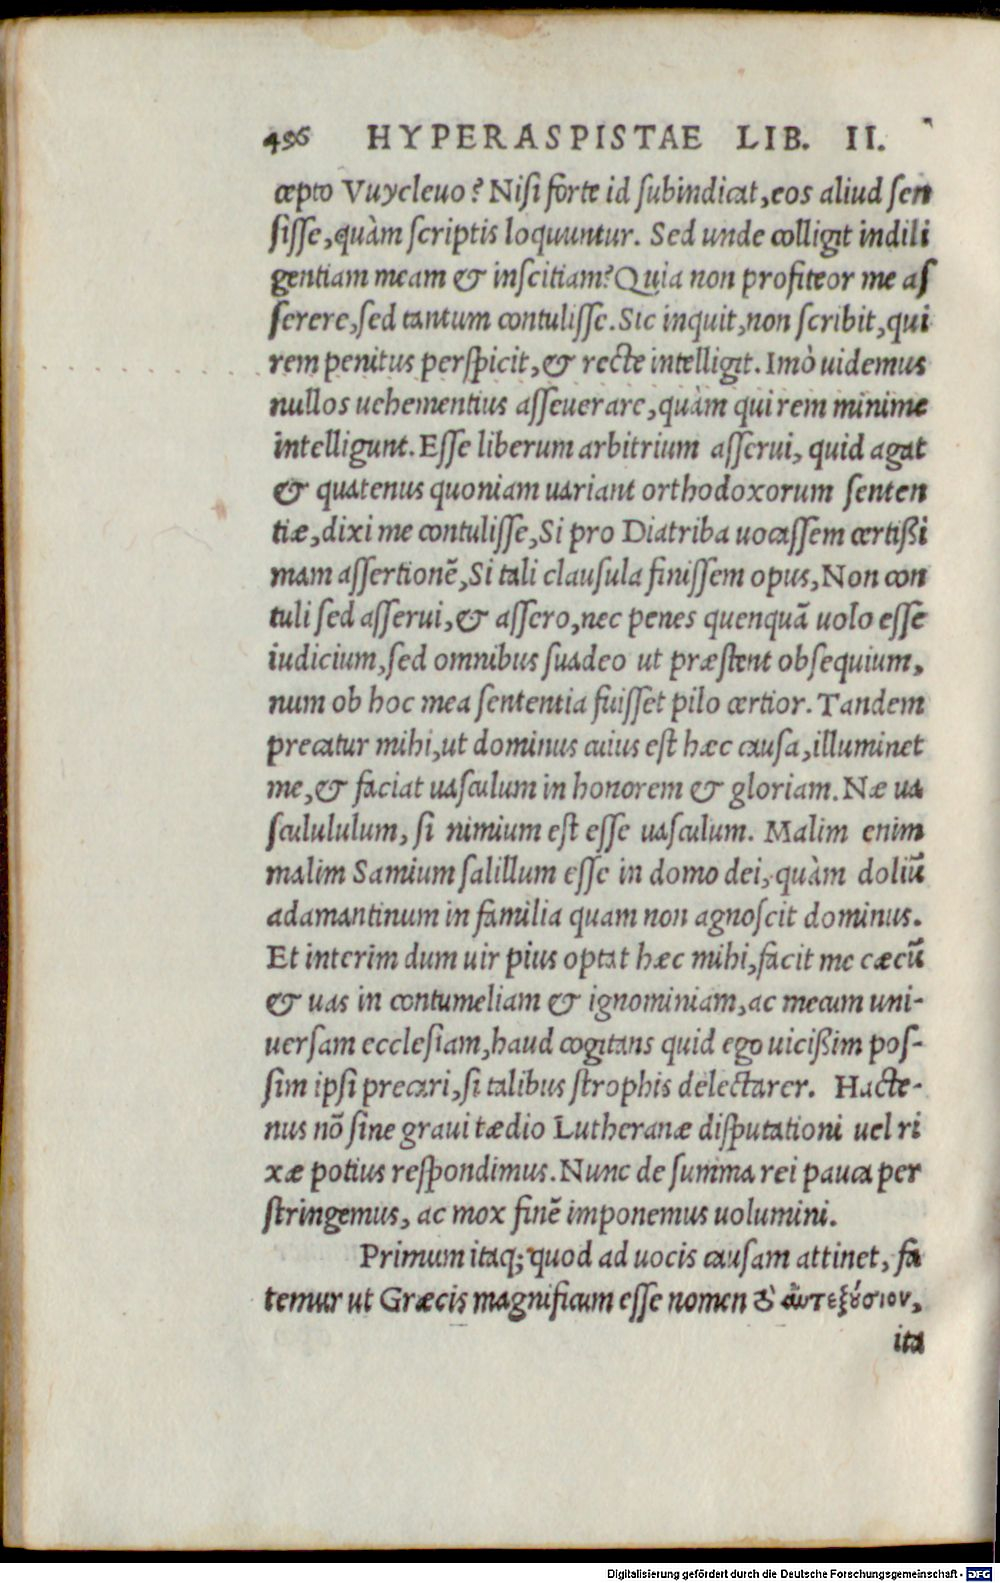 496 HYPERASPISTAE LIB. II.
cepto Vuycleuo? Nisi forte id subindicat, eos aliud sen
sisse, quàm scriptis loquuntur. Sed unde colligit indili
gentiam meam & inscitiam? Quia non profiteor me as
serere, sed tantum contulisse. Sic inquit, non scribit, qui
rem penitus perspicit, & recte intelligit. Imò uidemus
nullos uehementius asseuerare, quàm qui rem minime
intelligunt. Esse liberum arbitrium asserui, quid agat
& quatenus quoniam uariant orthodoxorum senten
tiæ, dixi me contulisse, Si pro Diatriba uocassem certißi
mam assertionē, Si tali clausula finissem opus, Non con
tuli sed asserui, & assero, nec penes quenquā uolo esse
iudicium, sed omnibus suadeo ut præstent obsequium,
num ob hoc mea sententia fuisset pilo certior. Tandem
precatur mihi, ut dominus cuius est hæc causa, illuminet
me, & faciat uasculum in honorem & gloriam. Næ ua
sculululum, si nimium est esse uasculum. Malim enim
malim Samium salillum esse in domo dei, quàm doliū
adamantinum in familia quam non agnoscit dominus.
Et interim dum uir pius optat hæc mihi, facit me cæcū
& uas in contumeliam & ignominiam, ac mecum uni-
uersam ecclesiam, haud cogitans quid ego uicißim pos-
sim ipsi precari, si talibus strophis delectarer. Hacte-
nus nō sine graui tædio Lutheranæ disputationi uel ri
xæ potius respondimus. Nunc de summa rei pauca per
stringemus, ac mox finē imponemus uolumini.
Primum itaq; quod ad uocis causam attinet, fa
temur ut Græcis magnificum esse nomen τȣ͂ αὐτεξȣ́σιον,
ita
Digitalisierung gefördert durch die Deutsche Forschungsgemeinschaft - DFG